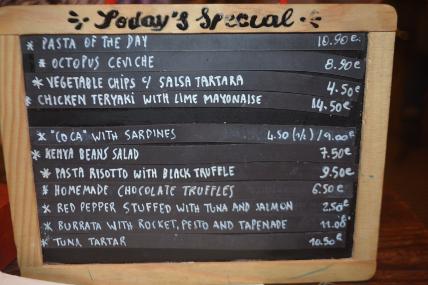 Today's Special
* PASTA OF THE DAY 10.90€
* OCTOPUS CEVICHE 8.90€
* VEGETABLE CHIPS c/ SALSA TARTARA 4.50€
* CHICKEN TERYAKI WITH LIME MAYONAISE 14.50€
* "COCA" WITH SARDINES 4.50 (1/2) / 9.00€
* KENYA BEANS SALAD 7.50€
* PASTA RISOTTO WITH BLACK TRUFFLE 9.50€
* HOMEMADE CHOCOLATE TRUFFLES 6.50€
* RED PEPPER STUFFED WITH TUNA AND SALMON 2.50€
* BURRATA WITH ROCKET, PESTO AND TAPENADE 11.00€
* TUNA TARTAR 10.50€